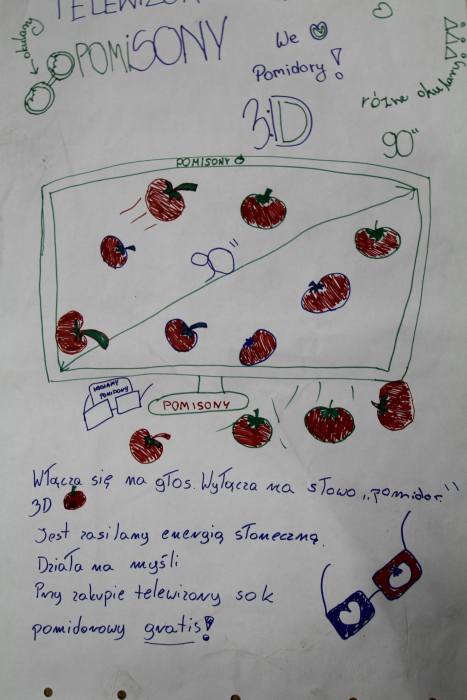 TELEWIZOR
POMISONY
okulary
We
Pomidory!
3D
różne okulary
90"
POMISONY
90"
KOCHAMY
POMIDORY
POMISONY
Włącza się na głos. Wyłącza na słowo „pomidor"
3D
Jest zasilany energią słoneczną.
Działa na myśli
Przy zakupie telewizony sok
pomidorowy gratis!